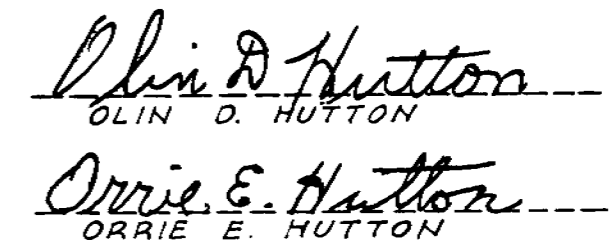 Olin D Hutton
OLIN D. HUTTON
Orrie E. Hutton
ORRIE E. HUTTON